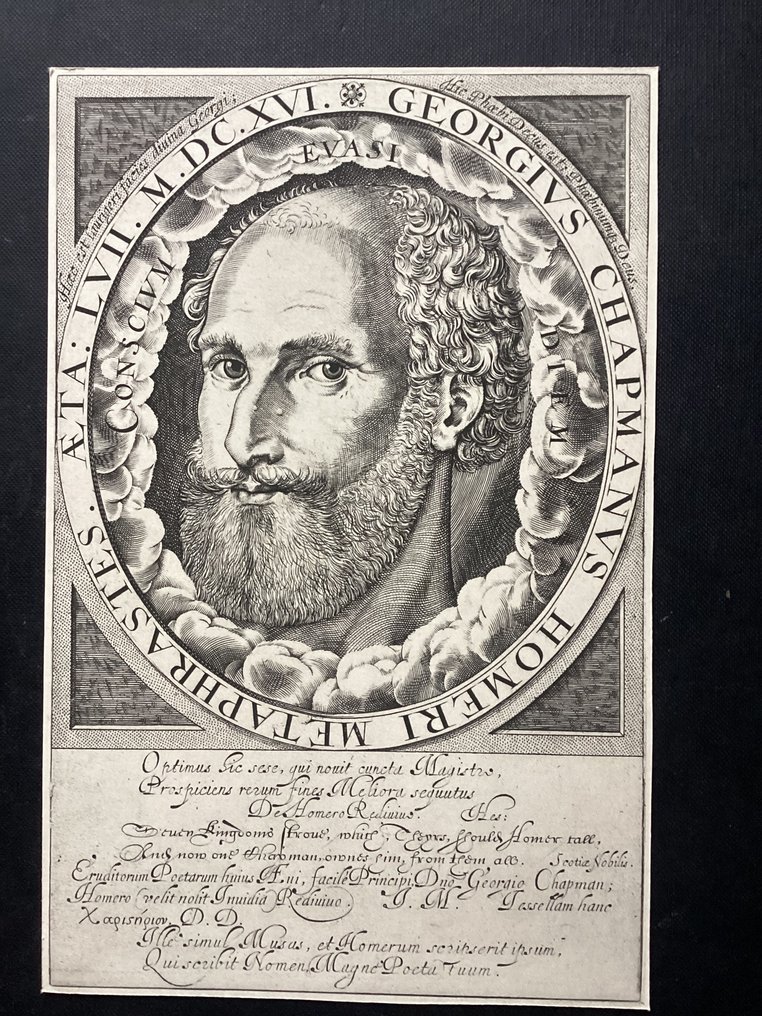 GEORGIVS CHAPMANVS HOMERI METAPHRASTES. ÆTA: LVII. M.DC.XVI.
Hæc est laurigeri facies diuina Georgi;
Hic Phœbi Decus est; Phœbinumq; Deus.
CONSCIVM EVASI DIEM
Optimus hic sese, qui nouit cuncta Magistro,
Prospiciens rerum fines Meliora sequutus
De Homero Rediuiuo. Hes:
Seuen Kingdoms stroue, which, Theyrs, should Homer call,
And now one Chapman, ownes him, from them all. Scotiæ Nobilis.
Eruditorum Poetarum huius Æui, facile Principi, Dno Georgio Chapman;
Homero (velit nolit Inuidia) Rediuiuo. J. M. Tessellam hanc
Χαριστήριον. D. D.
Ille simul Musas, et Homerum scripserit ipsum,
Qui scribit Nomen (Magne Poeta) Tuum.